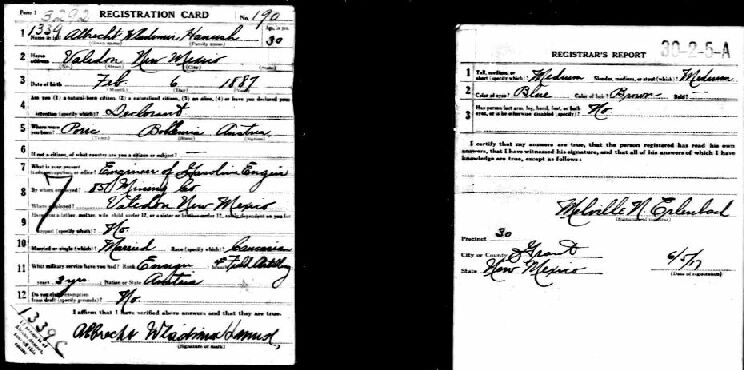 Form 1 3292 REGISTRATION CARD No. 190
1339
1 Albrecht Wladimir Hanush Age, in yrs. 30
2 Home address Valedon New Mexico
3 Date of birth Feb 6 1887
(Month) (Day) (Year)
4 Are you (1) a natural-born citizen, (2) a naturalized citizen, (3) an alien, (4) or have you declared your
intention (specify which)? Declarant
5 Where were you born? Bohemia Austria
6 If not a citizen, of what country are you a citizen or subject?
7 What is your present trade, occupation, or office? Engineer of Gasoline Engine
8 By whom employed? 85 Mining Co
Where employed? Valedon New Mexico
9 Have you a father, mother, wife, child under 12, or a sister or brother under 12, solely dependent on you for
support (specify which)? No
10 Married or single (which)? Married Race (specify which)? Caucasian
11 What military service have you had? Rank Ensign Field Artillery
years 3 yrs Nation or State Austria
12 Do you claim exemption from draft (specify grounds)? No
I affirm that I have verified above answers and that they are true.
Albrecht Wladimir Hanush
(Signature or mark)
7
1339 C
30-2-5-A
REGISTRAR'S REPORT
1 Tall, medium, or short (specify which)? Medium Slender, medium, or stout (which)? Medium
2 Color of eyes? Blue Color of hair? Brown Bald?
3 Has person lost arm, leg, hand, foot, or both eyes, or is he otherwise disabled (specify)? No
I certify that my answers are true, that the person registered has read his own
answers, that I have witnessed his signature, and that all of his answers of which I have
knowledge are true, except as follows:
Melville N. Erlenbach
Precinct 30
City or County Grant
State New Mexico
6/5/17
(Date of registration)